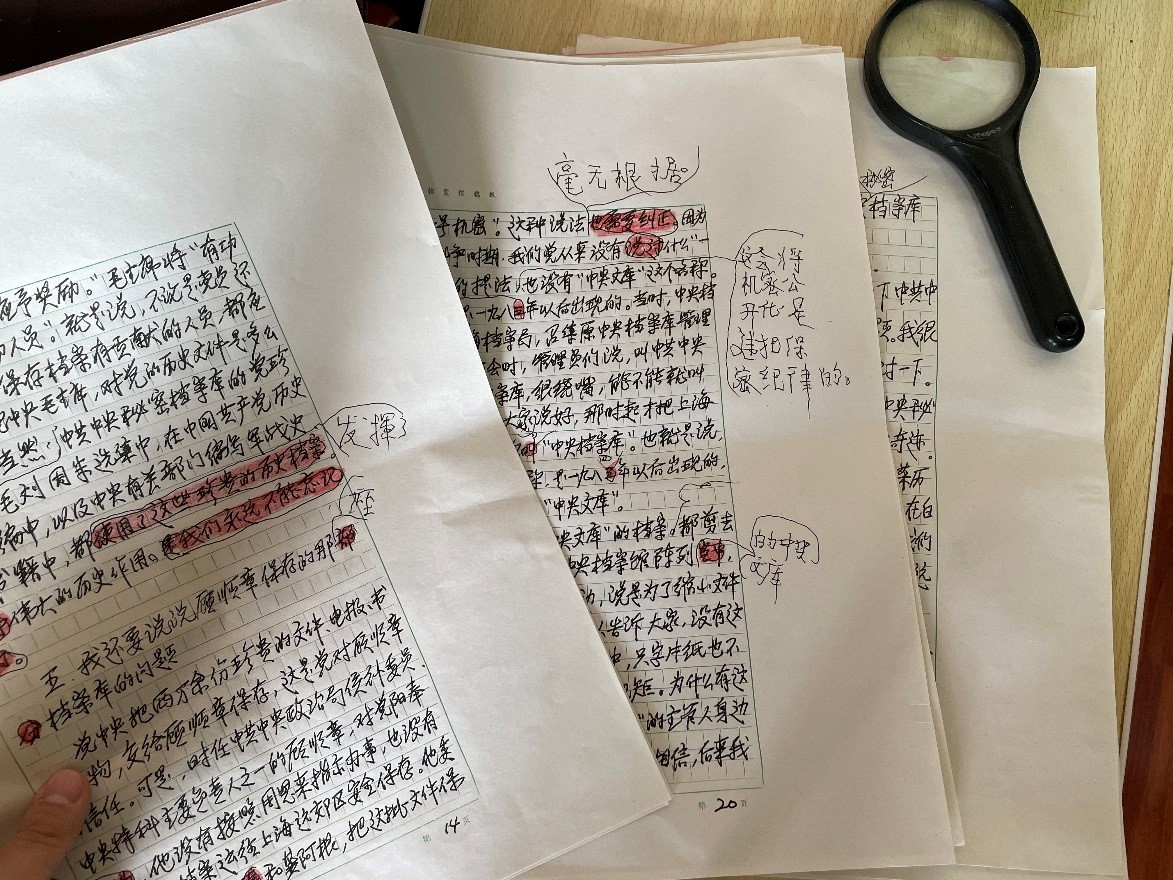 夜予奖励。"毛主席将"有功
人员"。就是说，不论是党员还
保存档案有贡献的人员，都在
到中央毛主席，对党的历史文件是多么
当然，中共中央秘密档案库的党珍
毛刘周朱选集中，在中国共产党历史
编中，以及中央有关部门编写军战史
书籍中，都使用了这些珍贵的历史档案
伟大的历史作用。是我们永远不能忘记
五、我还要说说顾顺章保存的那
档案库的问题
说中央把两万余份珍贵的文件、电报、书
物，交给顾顺章保存，这是党对顾顺章
信任。可是，时任中共中央政治局候补委员、
中央特科主要负责人之一的顾顺章，对党阳奉
他没有按照周恩来指示办事，也没有
档案运往上海远郊区安全保存。他委
和莫阿根，把这批文件保
发挥了
在
第 14 页
档案馆稿纸
毫无根据。
号机密"。这种说法也需要纠正。因为
争时期，我们党从来没有说过什么"一
的提法，也没有"中央文库"这个名称。
一九八 年以后出现的。当时，中央档
档案局，召集原中央档案库管理
会时，管理员们说，叫中共中央
案库，很绕嘴，能不能就叫
大家说好，那时起才把上海
"中央档案库"。也就是说，
是一九八 年以后出现的，
"中央文库"。
央文库"的档案。都剪去
央档案缩 陈列
说是为了缩小文件
告诉大家，没有这
，只字片纸也不
矩。为什么有这
"的主管人身边
相信，后来我
这会将
机密公
开化是
违犯保
密纪律的。
的中央
文库
第 20 页
秘密
档案库
下中共中
。我很
讨一下。
中央秘
奇迹。
亲历
在白
们